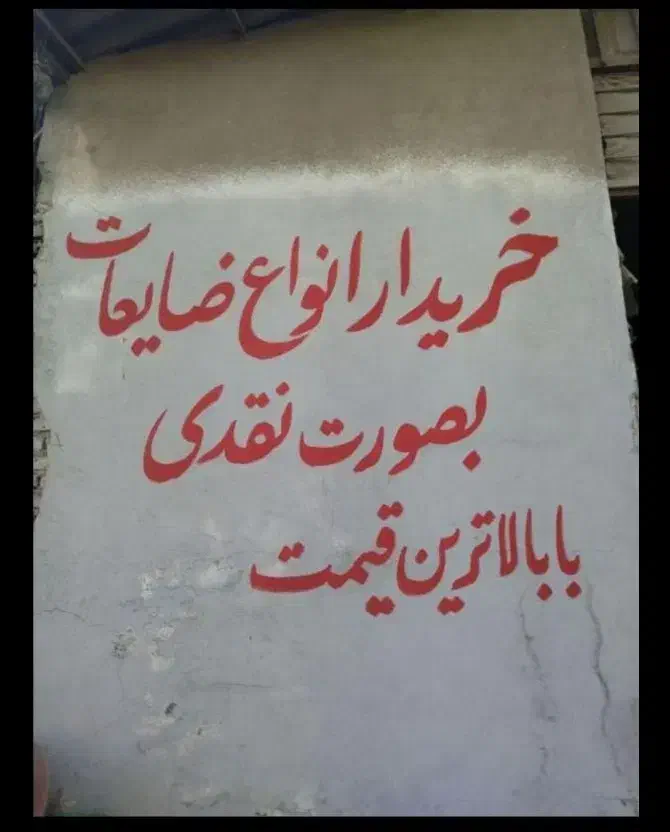 خریدار انواع ضایعات
بصورت نقدی
با بالاترین قیمت